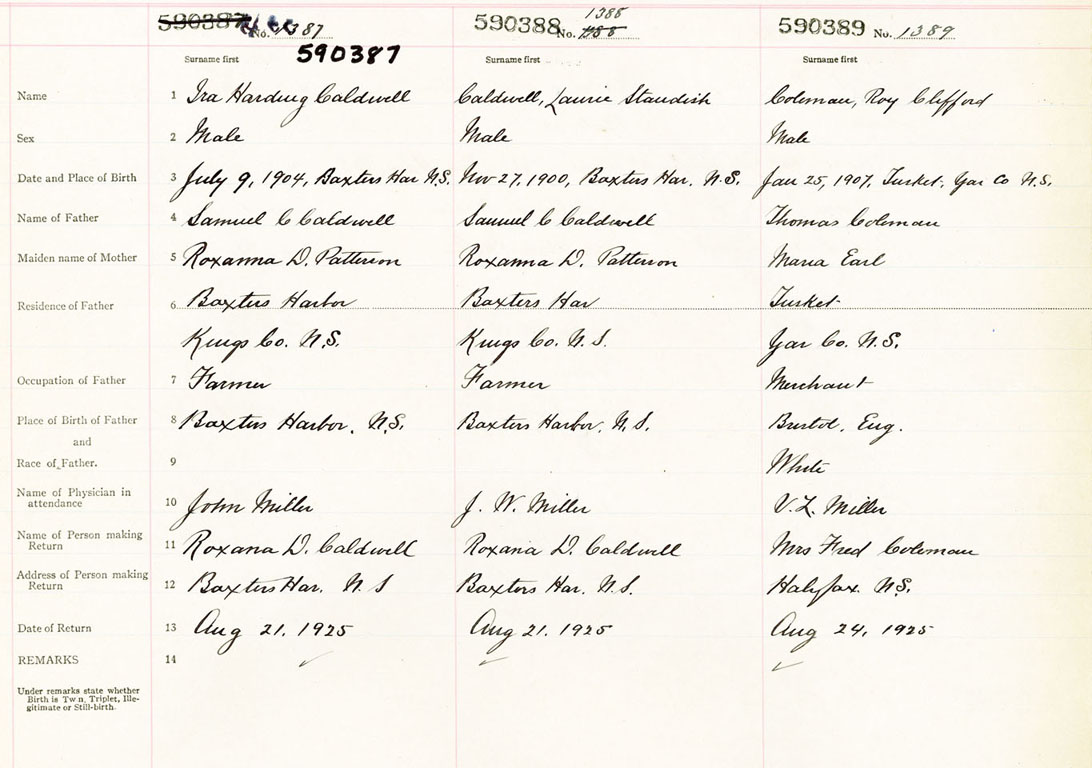 590387 No. 1387
590387
Surname first
590388 No. 1388
Surname first
590389 No. 1389
Surname first
Name 1 Ira Harding Caldwell Caldwell, Laurie Standish Coleman, Roy Clifford
Sex 2 Male Male Male
Date and Place of Birth 3 July 9, 1904, Baxters Har N.S. Nov 27, 1900, Baxters Har. N.S. Jan 25, 1907, Tusket, Yar Co N.S.
Name of Father 4 Samuel C Caldwell Samuel C Caldwell Thomas Coleman
Maiden name of Mother 5 Roxanna D. Patterson Roxanna D. Patterson Maria Earl
Residence of Father 6 Baxters Harbor Baxters Har Tusket
Kings Co. N.S. Kings Co. N.S. Yar Co. N.S.
Occupation of Father 7 Farmer Farmer Merchant
Place of Birth of Father 8 Baxters Harbor, N.S. Baxters Harbor, N.S. Bristol, Eng.
and
Race of Father. 9 White
Name of Physician in
attendance 10 John Miller J. W. Miller V. L. Miller
Name of Person making
Return 11 Roxana D. Caldwell Roxana D. Caldwell Mrs Fred Coleman
Address of Person making
Return 12 Baxters Har. N.S Baxters Har. N.S. Halifax N.S.
Date of Return 13 Aug 21, 1925 Aug 21, 1925 Aug 24, 1925
REMARKS 14
Under remarks state whether
Birth is Twin, Triplet, Ille-
gitimate or Still-birth.